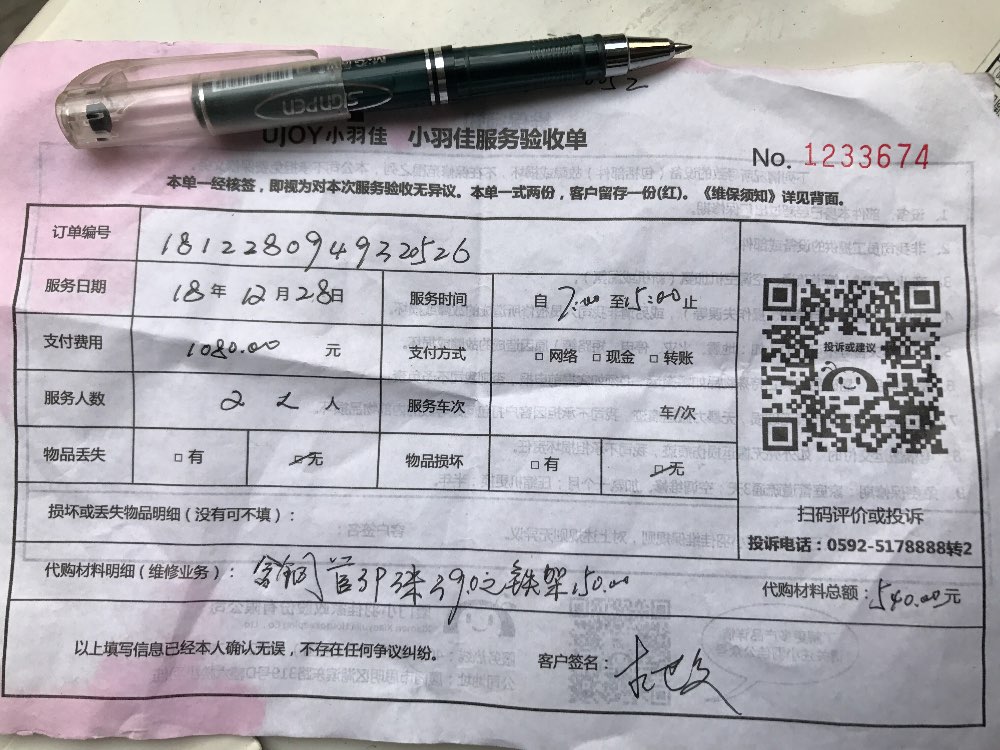 Sanpen
UJOY小羽佳 小羽佳服务验收单
No. 1233674
本单一经核签，即视为对本次服务验收无异议。本单一式两份，客户留存一份(红)。《维保须知》详见背面。
订单编号 1812280949320526
服务日期 18年12月28日 服务时间 自7:00至15:00止
支付费用 1080.00 元 支付方式 □网络 □现金 □转账
服务人数 2 人 服务车次 车/次
物品丢失 □有 □无 物品损坏 □有 □无
投诉或建议
扫码评价或投诉
投诉电话：0592-5178888转2
损坏或丢失物品明细（没有可不填）：
代购材料明细（维修业务）： 管 米 铁架150.00
代购材料总额：540.00元
以上填写信息已经本人确认无误，不存在任何争议纠纷。 客户签名：